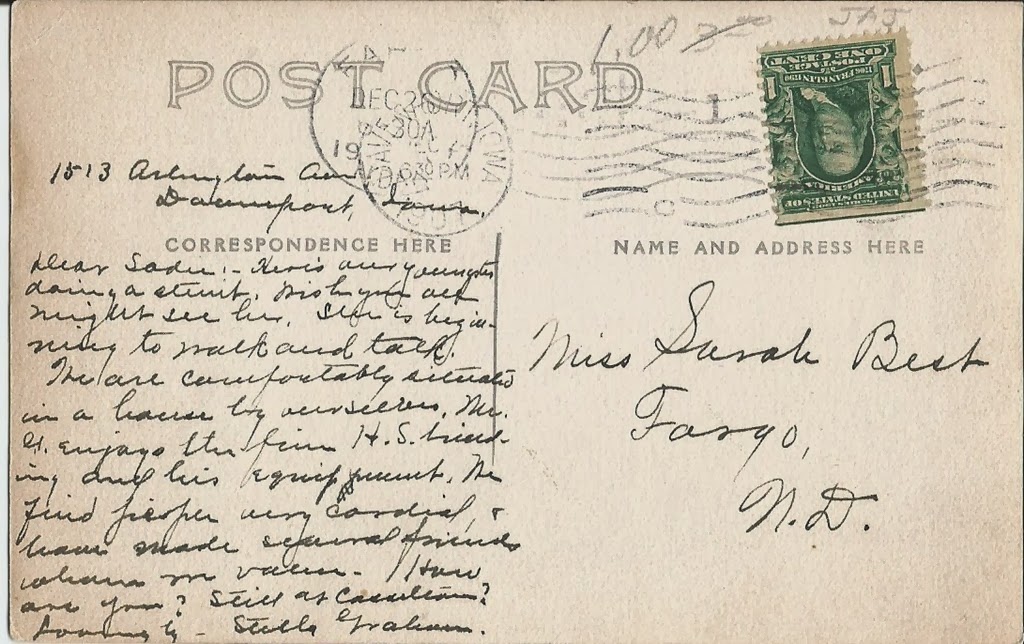 1.00 3.00 JAJ
POST CARD
DEC 26
830A
19
630 PM
1
C
ONE CENT
POSTAGE
1706 FRANKLIN 1790
1 1
UNITED STATES OF
AMERICA
1513 Arlington Ave
Davenport, Iowa.
CORRESPONDENCE HERE
NAME AND ADDRESS HERE
Dear Sadie:- Here's our youngster
doing a stunt. Wish you all
might see her. She is begin-
ning to walk and talk.
We are comfortably situated
in a house by ourselves. Mr.
G. enjoys the fine H.S. build-
ing and his equippment. We
find people very cordial, &
have made several friends
whom we value - How
are you? Still at Casselton?
Lovingly - Stella Graham.
Miss Sarah Best
Fargo,
N.D.